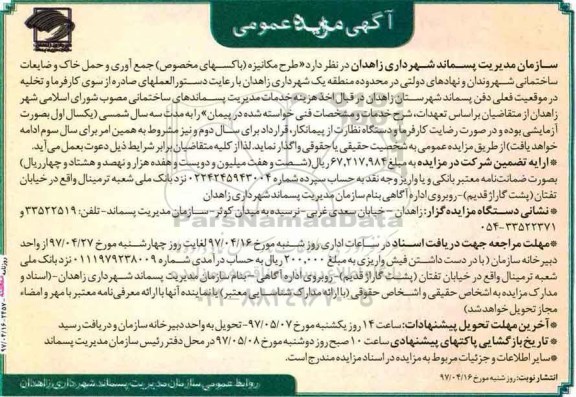 آگهی مزایده عمومی
سازمان مدیریت پسماند شهرداری زاهدان در نظر دارد «طرح مکانیزه (باکسهای مخصوص) جمع آوری و حمل خاک و ضایعات
ساختمانی شهروندان و نهادهای دولتی در محدوده منطقه یک شهرداری زاهدان با رعایت دستورالعملهای صادره از سوی کارفرما و تخلیه
در موقعیت فعلی دفن پسماند شهرستان زاهدان در قبال اخذ هزینه خدمات مدیریت پسماندهای ساختمانی مصوب شورای اسلامی شهر
زاهدان از متقاضیان بر اساس تعهدات، شرح خدمات و مشخصات فنی خواسته شده در پیمان» را به مدت سه سال شمسی (یکسال اول بصورت
آزمایشی بوده و در صورت رضایت کارفرما و دستگاه نظارت از پیمانکار، قرارداد برای سال دوم و نیز مشروط به همین امر برای سال سوم ادامه
خواهد یافت) از طریق مزایده عمومی به شخصیت حقیقی یا حقوقی واگذار نماید. لذا از کلیه متقاضیان برابر شرایط ذیل دعوت بعمل می آید.
* ارایه تضمین شرکت در مزایده به مبلغ ۶۷,۲۱۷,۹۸۴ ریال (شصت و هفت میلیون و دویست و هفده هزار و نهصد و هشتاد و چهار ریال)
بصورت ضمانت‌نامه معتبر بانکی و یا واریز وجه نقد به حساب سپرده شماره ۰۲۲۴۲۴۵۹۴۳۰۰۴ نزد بانک ملی شعبه ترمینال واقع در خیابان
تفتان (پشت گاراژ قدیم)- روبروی اداره آگاهی بنام سازمان مدیریت پسماند شهرداری زاهدان
* نشانی دستگاه مزایده گزار: زاهدان - خیابان سعدی غربی - نرسیده به میدان کوثر - سازمان مدیریت پسماند - تلفن: ۳۳۵۲۲۵۱۹ و
۳۳۵۲۲۳۷۱-۰۵۴
* مهلت مراجعه جهت دریافت اسناد در ساعات اداری روز شنبه مورخ ۹۷/۰۴/۱۶ لغایت روز چهارشنبه مورخ ۹۷/۰۴/۲۷ از واحد
دبیرخانه سازمان (با در دست داشتن فیش واریزی به مبلغ ۲۰۰,۰۰۰ ریال به حساب درآمدی شماره ۰۱۱۱۹۷۹۲۳۸۰۰۹ نزد بانک ملی
شعبه ترمینال واقع در خیابان تفتان (پشت گاراژ قدیم)- روبروی اداره آگاهی - بنام سازمان مدیریت پسماند شهرداری زاهدان - (اسناد و
مدارک مزایده به اشخاص حقیقی و اشخاص حقوقی (با ارائه مدارک شناسایی معتبر) یا نماینده آنها با ارائه معرفی نامه معتبر با مهر و امضاء
مجاز تحویل خواهد شد)
* آخرین مهلت تحویل پیشنهادات: ساعت ۱۴ روز یکشنبه مورخ ۹۷/۰۵/۰۷ - تحویل به واحد دبیرخانه سازمان و دریافت رسید
* تاریخ بازگشایی پاکتهای پیشنهادی ساعت ۱۰ صبح روز دوشنبه مورخ ۹۷/۰۵/۰۸ در محل دفتر رئیس سازمان مدیریت پسماند
* سایر اطلاعات و جزئیات مربوط به مزایده در اسناد مزایده مندرج است.
انتشار نوبت: روز شنبه مورخ ۹۷/۰۴/۱۶
روابط عمومی سازمان مدیریت پسماند شهرداری زاهدان
ParsNamadData